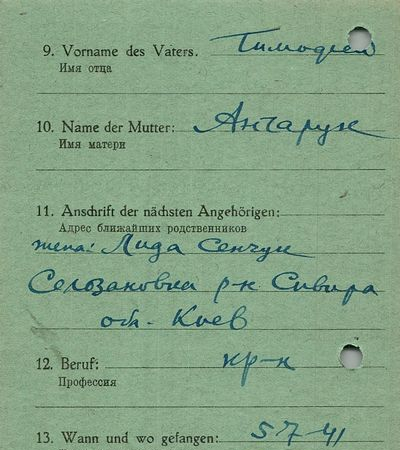 9. Vorname des Vaters. Тимофей
Имя отца
10. Name der Mutter: Анчарук
Имя матери
11. Anschrift der nächsten Angehörigen:
Адрес ближайших родственников
жена: Лида Сенчук
р-н Сквира
обл- Киев
12. Beruf: кр-н
Профессия
13. Wann und wo gefangen: 5-7-41